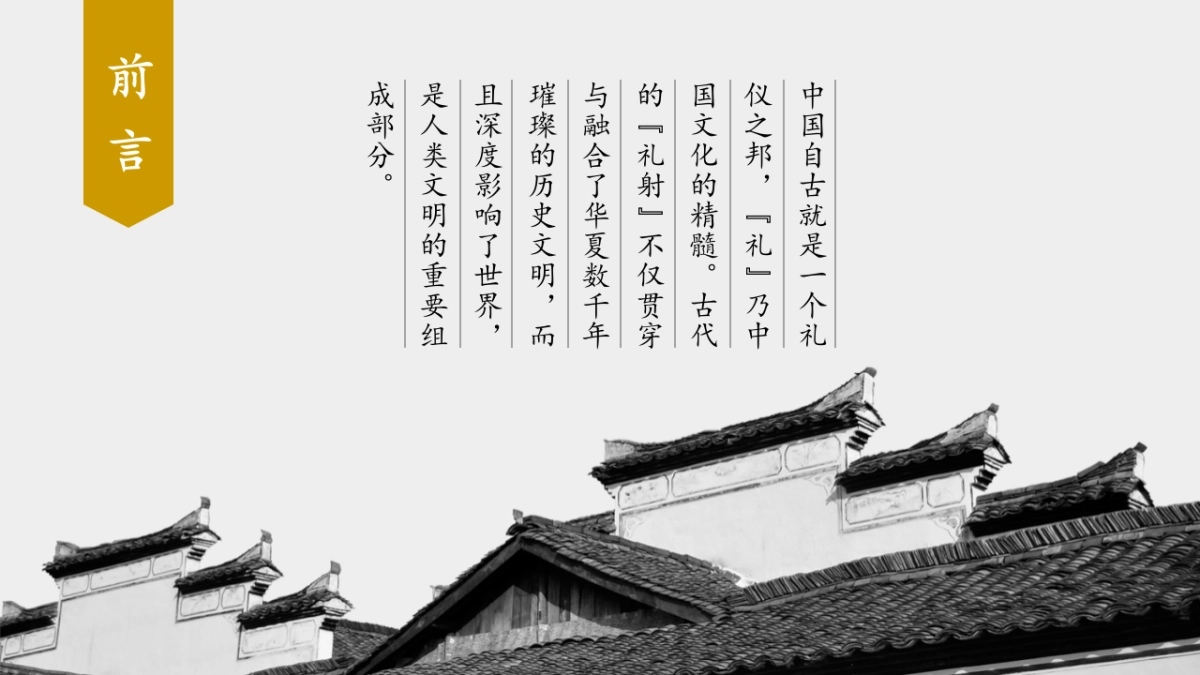 前言
中国自古就是一个礼
仪之邦，『礼』乃中
国文化的精髓。古代
的『礼射』不仅贯穿
与融合了华夏数千年
璀璨的历史文明，而
且深度影响了世界，
是人类文明的重要组
成部分。